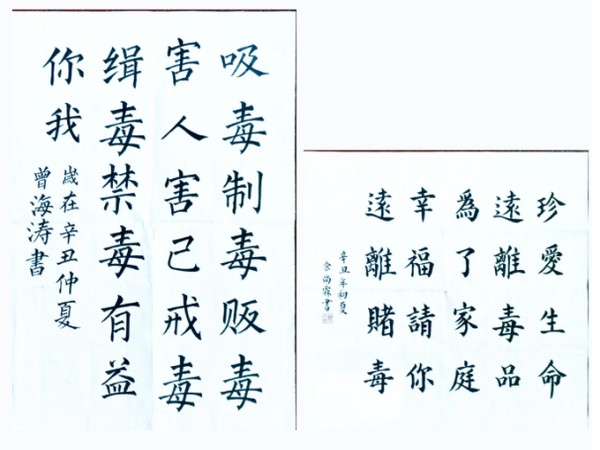 吸毒制毒贩毒
害人害己戒毒
缉毒禁毒有益
你我
歲在辛丑仲夏
曾海涛書
珍愛生命
遠離毒品
爲了家庭
幸福請你
遠離賭毒
辛丑年初夏
余尚霖書